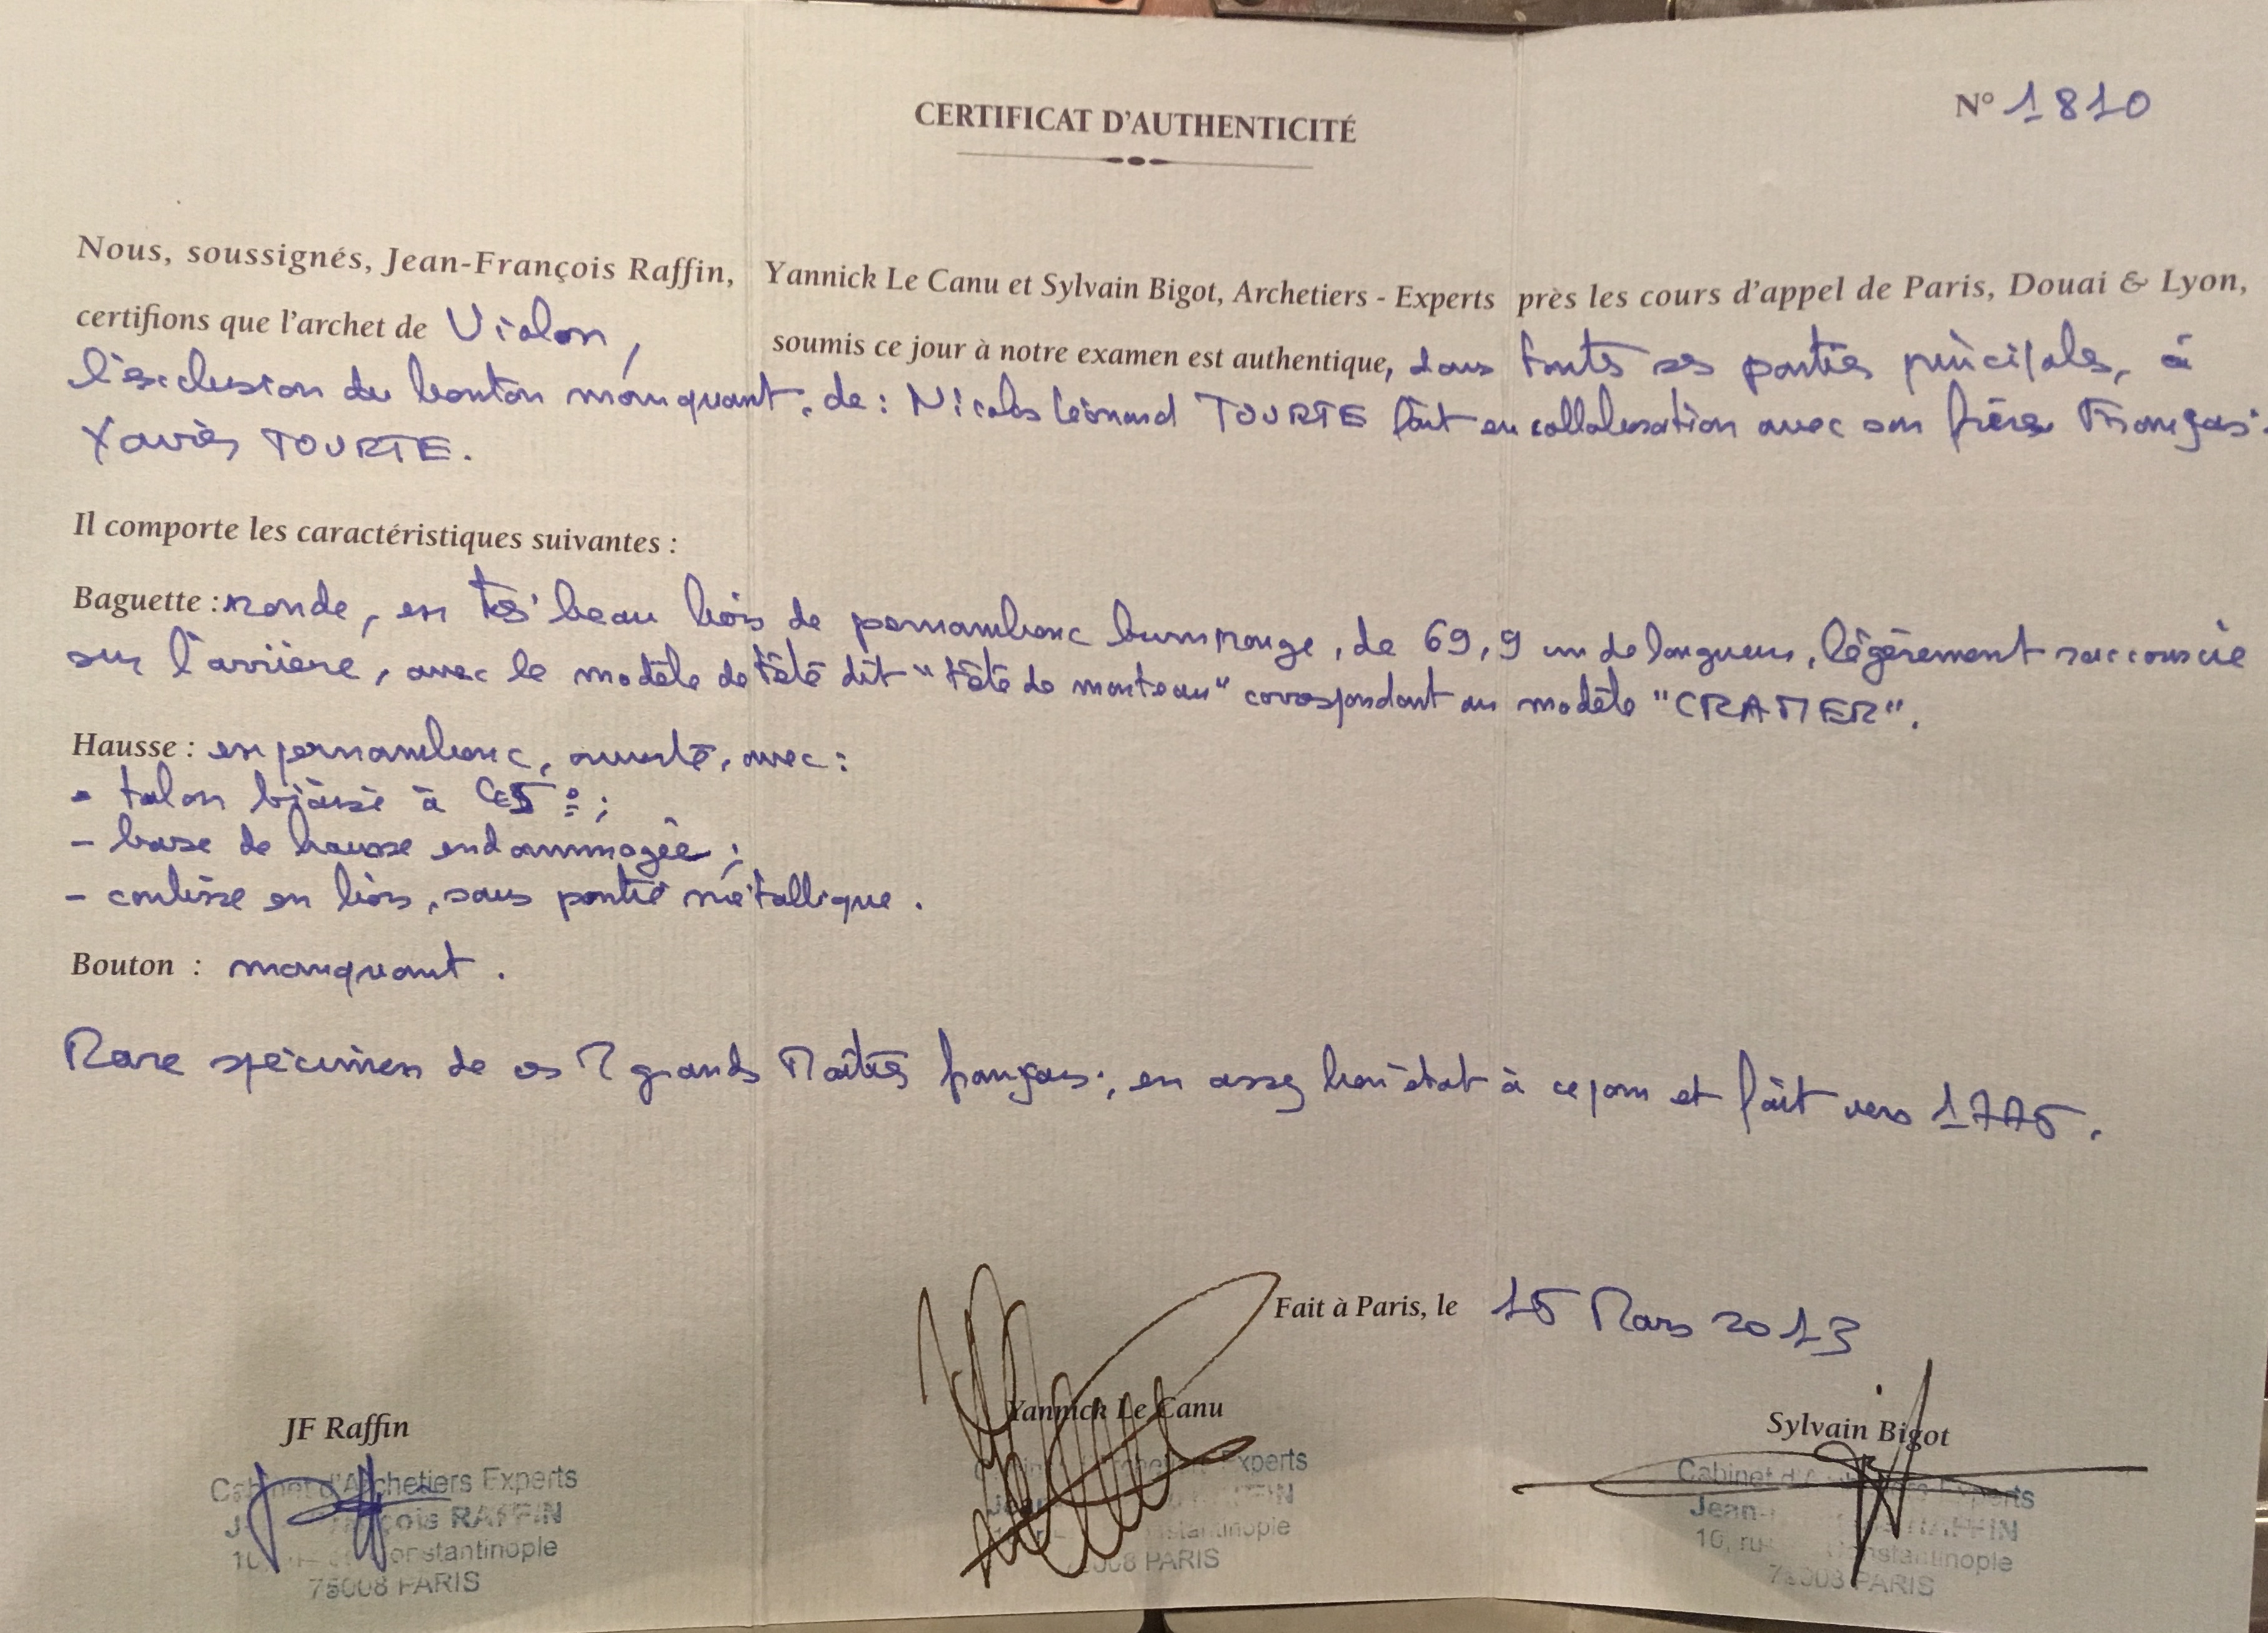 CERTIFICAT D'AUTHENTICITÉ
N° 1810
Nous, soussignés, Jean-François Raffin, Yannick Le Canu et Sylvain Bigot, Archetiers - Experts près les cours d'appel de Paris, Douai & Lyon,
certifions que l'archet de Violon, soumis ce jour à notre examen est authentique, dans toutes ses parties principales, à
l'exclusion du bouton manquant, de : Nicolas Léonard TOURTE fait en collaboration avec son frère François
Xavier TOURTE.
Il comporte les caractéristiques suivantes :
Baguette : ronde, en très beau bois de pernambouc brun rouge, de 69,9 cm de longueur, légèrement raccourcie
sur l'arrière, avec le modèle de tête dit "tête de marteau" correspondant au modèle "CRAMER".
Hausse : en pernambouc, ouverte, avec :
- talon biaisé à 45° ;
- base de hausse endommagée ;
- coulisse en bois, sans partie métallique.
Bouton : manquant.
Rare spécimen de ces 2 grands Maîtres français, en assez bon état à ce jour et fait vers 1775.
Fait à Paris, le 15 Mars 2013
JF Raffin
Yannick Le Canu
Sylvain Bigot
Cabinet d'Archetiers Experts
Jean-François RAFFIN
10, rue de Constantinople
75008 PARIS
Cabinet d'Archetiers Experts
Jean-François RAFFIN
10, rue de Constantinople
75008 PARIS
Cabinet d'Archetiers Experts
Jean-François RAFFIN
10, rue de Constantinople
75008 PARIS